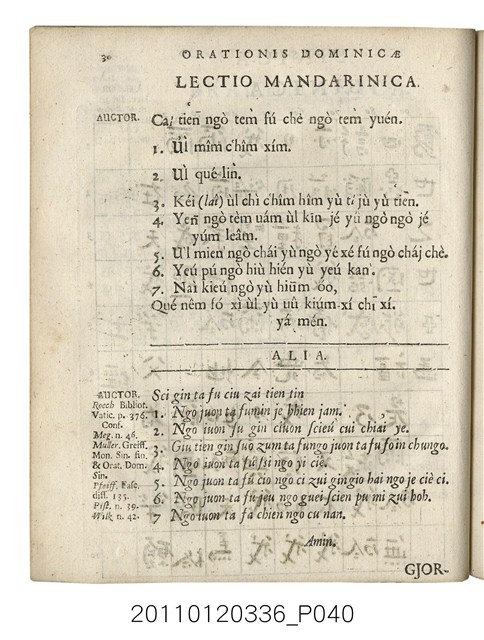 30 ORATIONIS DOMINICÆ
LECTIO MANDARINICA.
AUCTOR. Cai tien ngò tem fú chè ngò tem yuén.
1. Ul mîm c'hîm xím.
2. Ul qué lin.
3. Kéi (lai) ùl chì c'him hîm yù ti jù yù tien.
4. Yen ngò tèm uám ùl kin jé yù ngò ngò jé
yúm leâm.
5. Ul mien ngò chái yù ngò yé xé fú ngò cháj chè.
6. Yeú pú ngò hiù hién yù yeú kan.
7. Naì kieú ngò yù hiūm òo,
Qué nêm fó xì ùl yù uû kiúm-xí chī xí.
yá mén.
ALIA.
AUCTOR. Sci gin ta fu ciu zai tien tin
Rocch Bibliot.
Vatic. p. 376. 1. Ngo juon ta fumin je phien jam.
Conf. 2. Ngo iuon fu gin cluon scieú cui chiai ye.
Meg. n. 46.
Muller. Greiff. 3. Giu tien gin suo zum ta fungo juon ta fu so in chungo.
Mon. Sin. fin. 4. Ngo iuon ta fú si ngo yi ciè.
& Orat. Dom.
Sin. 5. Ngo juon ta fú cio ngo ci zui gin gio hai ngo je ciè ci.
Pfeiff. Fasc.
diss. 135. 6. Ngo juon ta fú jeu ngo guei scien pu mi zui hoh.
Pist. n. 39.
Walk. n. 42. 7 Ngo iuon ta fa chien ngo cu nan.
Amin.
GJOR-
20110120336_P040